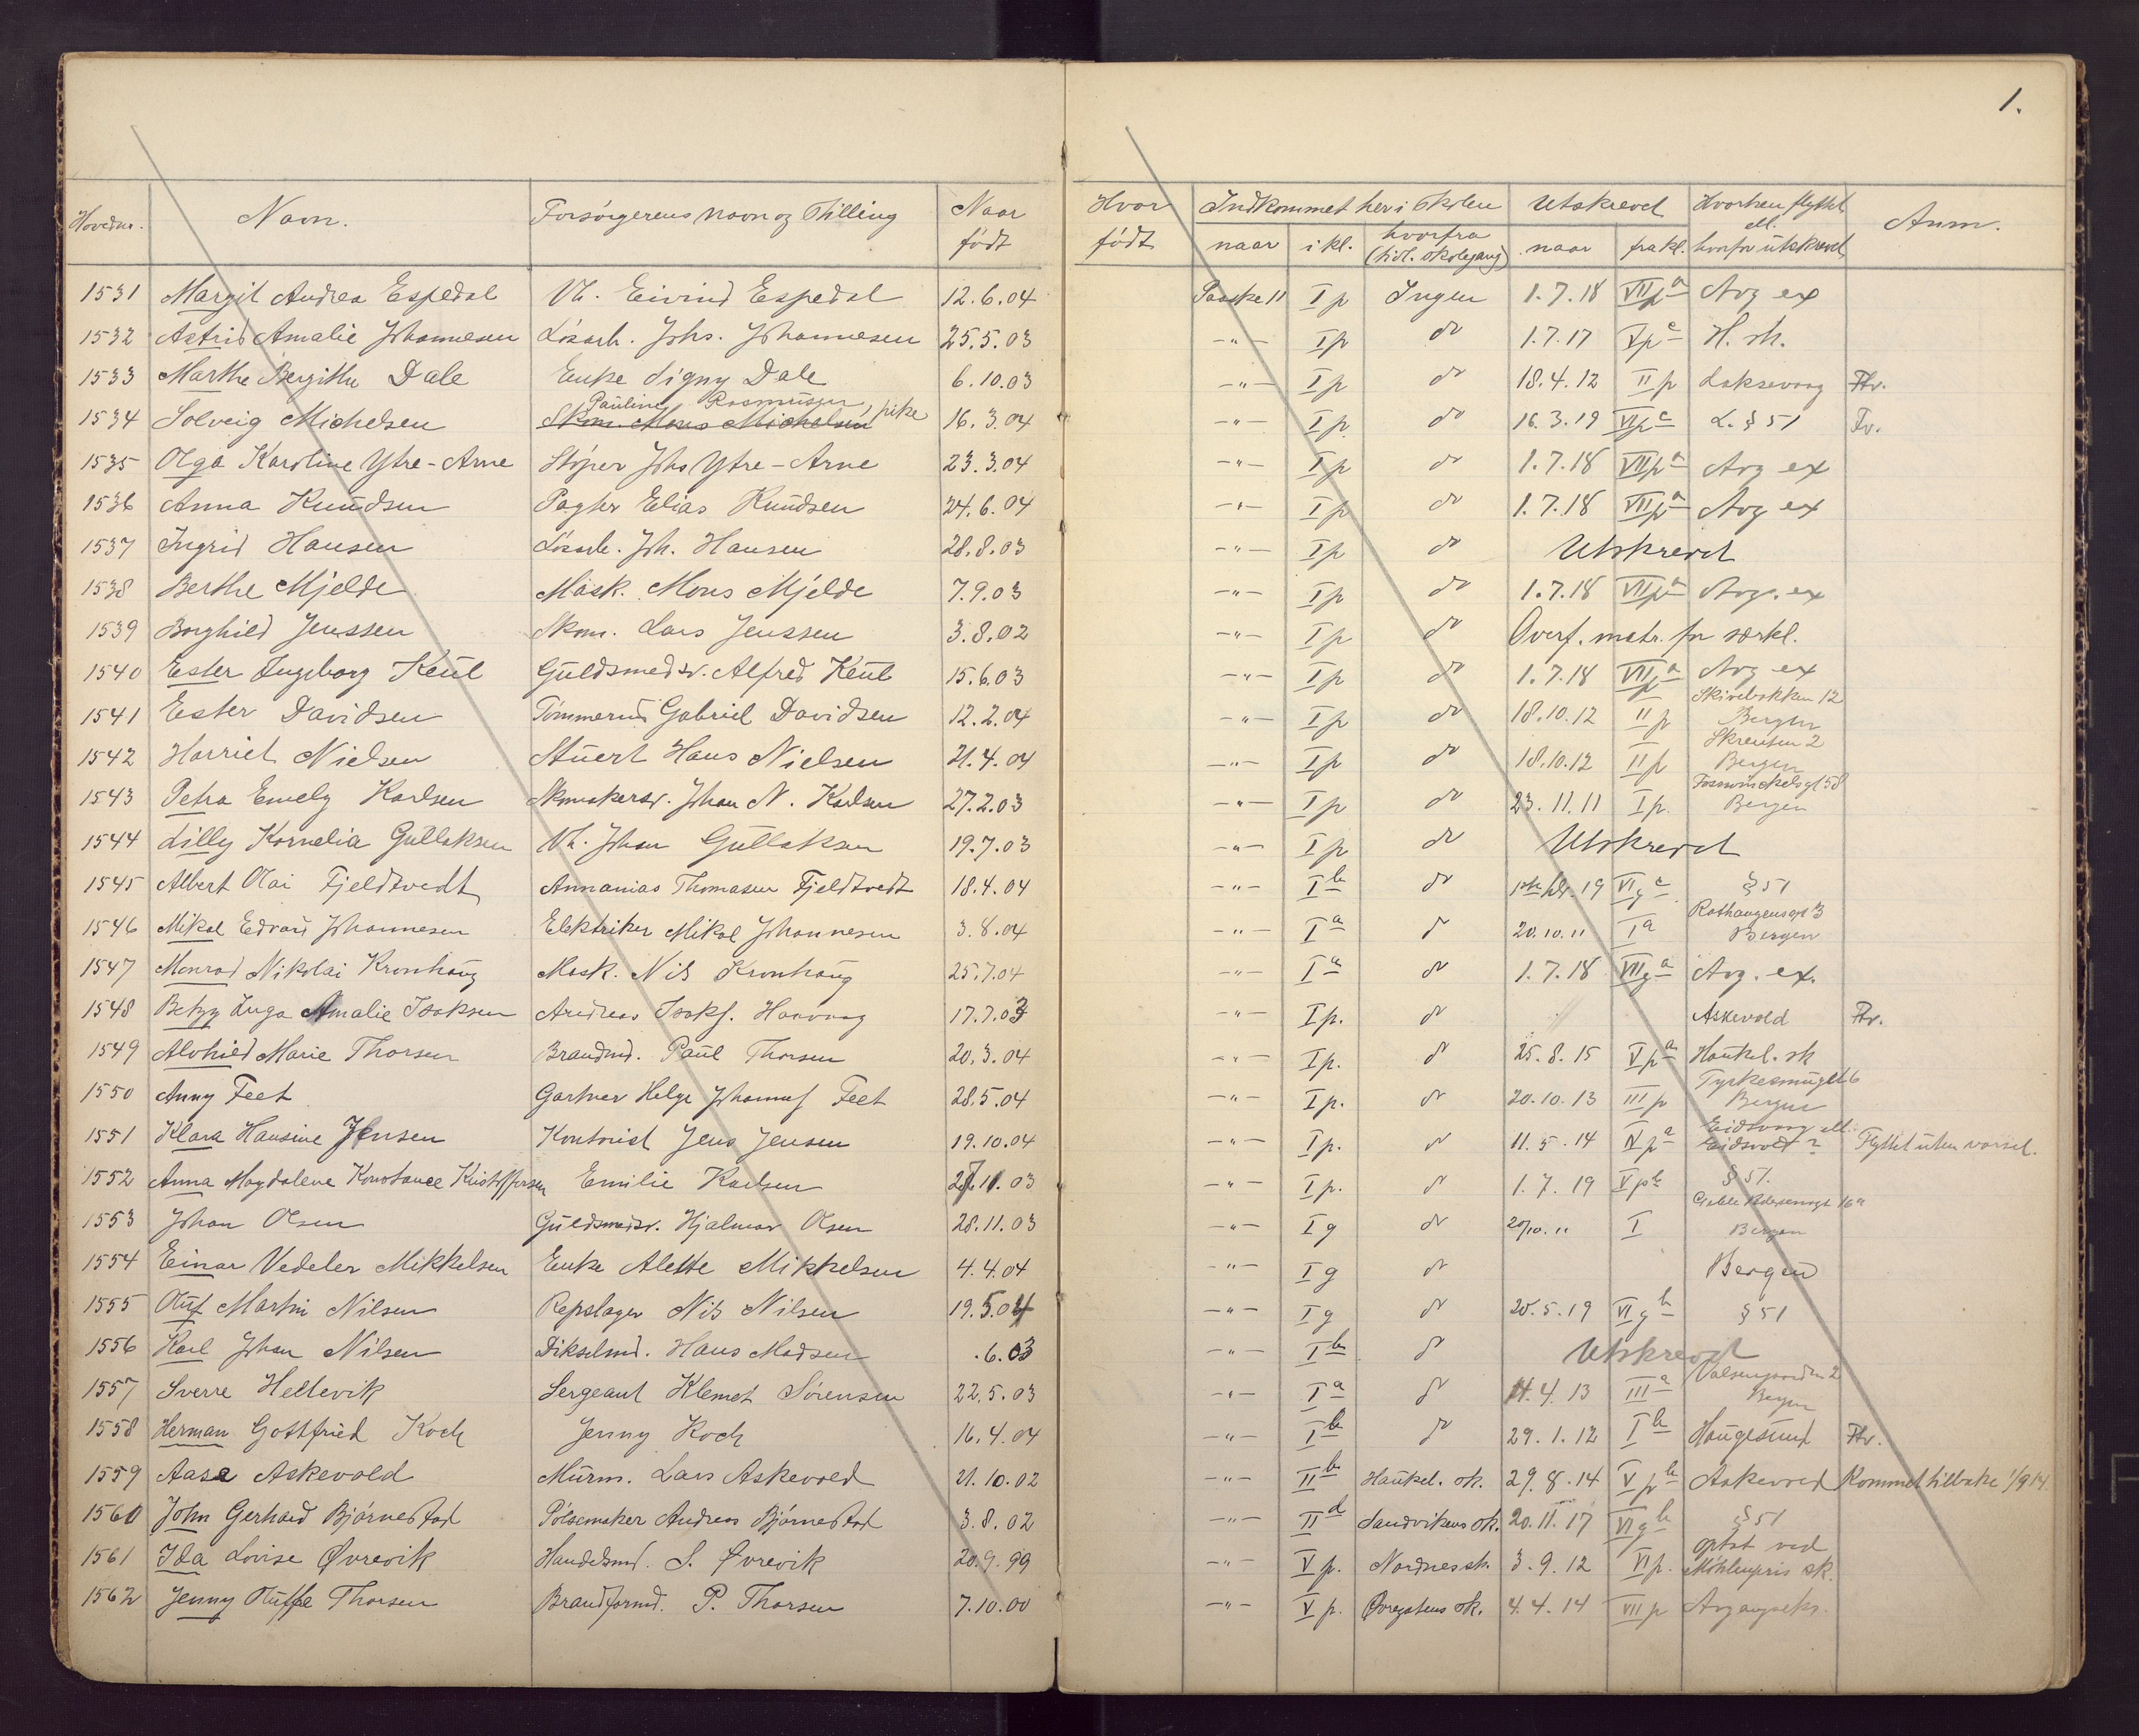 1.
Hovednr. Navn. Forsörgerens navn og Stilling Naar födt Hvor födt Indkommet her i skolen naar i kl. hvorfra (tidl. skolegang) Utskrevet naar fra kl. Hvorhen flyttet ell. hvorfor utskrevet Anm.
1531 Margit Andrea Espedal Vh. Eivind Espedal 12.6.04 Paaske 11 I p Ingen 1.7.18 VII p a Avg ex
1532 Astrid Amalie Johannesen Lösarb. Johs. Johannesen 25.5.03 -"- I p do 1.7.17 V p c H. sk.
1533 Marthe Bergithe Dale Enke Signy Dale 6.10.03 -"- I p do 18.4.12 II p Laksevaag Ftv.
Pauline Rasmussen, pike
1534 Solveig Michelsen Skom. Mons Michelsen 16.3.04 -"- I p do 16.3.19 VI p c L. § 51 Fv.
1535 Olga Karoline Ytre-Arne Stöper Johs Ytre-Arne 23.3.04 -"- I p do 1.7.18 VII p a Avg ex
1536 Anna Knudsen Pagter Elias Knudsen 24.6.04 -"- I p do 1.7.18 VII p a Avg ex
1537 Ingrid Hansen Lösarb. Joh. Hansen 28.8.03 -"- I p do Utskrevet
1538 Berthe Mjelde Mask. Mons Mjelde 7.9.03 -"- I p do 1.7.18 VII p a Avg. ex
1539 Borghild Jenssen Skom. Lars Jenssen 3.8.02 -"- I p do Overf. matr. for særkl.
1540 Ester Ingeborg Keul Guldsmedsv. Alfred Keul 15.6.03 -"- I p do 1.7.18 VII p a Avg ex
Skivebakken 12
1541 Ester Davidsen Tömmermd Gabriel Davidsen 12.2.04 -"- I p do 18.10.12 II p Bergen
Skrenten 2
1542 Harriet Nielsen Stuert Hans Nielsen 21.4.04 -"- I p do 18.10.12 II p Bergen
1543 Petra Emely Karlsen Skomakersv. Johan N. Karlsen 27.2.03 -"- I p do 23.11.11 I p. Bergen
1544 Lilly Kornelia Gullaksen Vh. Johan Gullaksen 19.7.03 -"- I p do Utskrevet
1545 Albert Olai Fjeldtvedt Annanias Thomassen Fjeldtvedt 18.4.04 -"- I b do 19 VI g c § 51
1546 Mikal Edvard Johannesen Elektriker Mikal Johannesen 3.8.04 -"- I a do 20.10.11 I a Bergen
1547 Monrad Nikolai Kronhaug Mask. Nils Kronhaug 25.7.04 -"- I a do 1.7.18 VII g a Avg. ex.
1548 Betzy Inga Amalie Isaksen Andreas Isaks. Haavaag 17.7.03 -"- I p. do Askevold Ftv.
1549 Alvhild Marie Thorsen Brandmd. Paul Thorsen 20.3.04 -"- I p. do 25.8.15 V p a Haukel. sk
1550 Anny Feet Gartner Helge Johannes Feet 28.5.04 -"- I p. do 20.10.13 III p Bergen
Eidsvaag ell.
1551 Klara Hansine Jensen Kontorist Jens Jensen 19.10.04 -"- I p. do 11.5.14 IV p a Eidsvold? Flyttet uten varsel.
1552 Anna Magdalene Konstance Kristoffersen Emilie Karlsen 27.11.03 -"- I p. do 1.7.19 V p b § 51.
1553 Johan Olsen Guldsmedsv. Hjalmar Olsen 28.11.03 -"- I g do 20/10.11 I Bergen
1554 Einar Vedeler Mikkelsen Enke Alette Mikkelsen 4.4.04 -"- I g do Bergen
1555 Oluf Martin Nilsen Repslager Nils Nilsen 19.5.04 -"- I g do 20.5.19 VI g b § 51
1556 Karl Johan Nilsen Dikselmd. Hans Madsen .6.03 -"- I b do Utskrevet
1557 Sverre Hellevik Sergeant Klemet Sörensen 22.5.03 -"- I a do 11.4.13 III a Bergen
1558 Herman Gottfried Koch Jenny Koch 16.4.04 -"- I b do 29.1.12 I b Haugesund Ftv.
1559 Aasa Askevold Murm. Lars Askevold 21.10.02 -"- II b Haukel. sk. 29.8.14 V p b Askevold Kommet tilbake 1/9 14.
1560 John Gerhard Björnestad Pölsemaker Andreas Björnestad 3.8.02 -"- II d Sandvikens sk. 20.11.17 VI g b § 51
optat ved
1561 Ida Lovise Øvrevik Handelsmd. S. Øvrevik 20.9.99 -"- V p. Nordnes sk. 3.9.12 VI p. Möhlenpris sk.
1562 Jenny Oluffe Thorsen Brandformd. P. Thorsen 7.10.00 -"- V p. Øvregatens sk. 4.4.14 VII p Avgangseks.